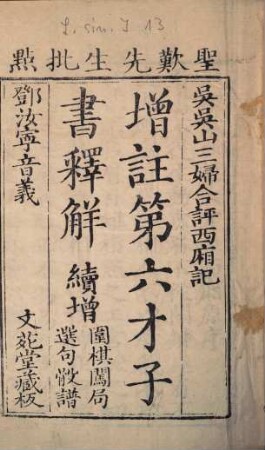 L. sin. I 13
聖歎先生批點
吳吳山三婦合評西廂記
增註第六才子
書釋解
續增
圍棋闖局
選句骰譜
鄧汝寧音義
文苑堂藏板